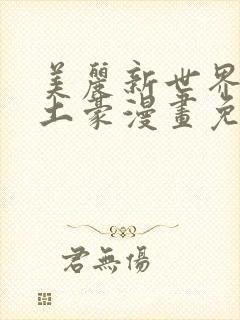 美麗新世界
土豪漫畫免
君無傷